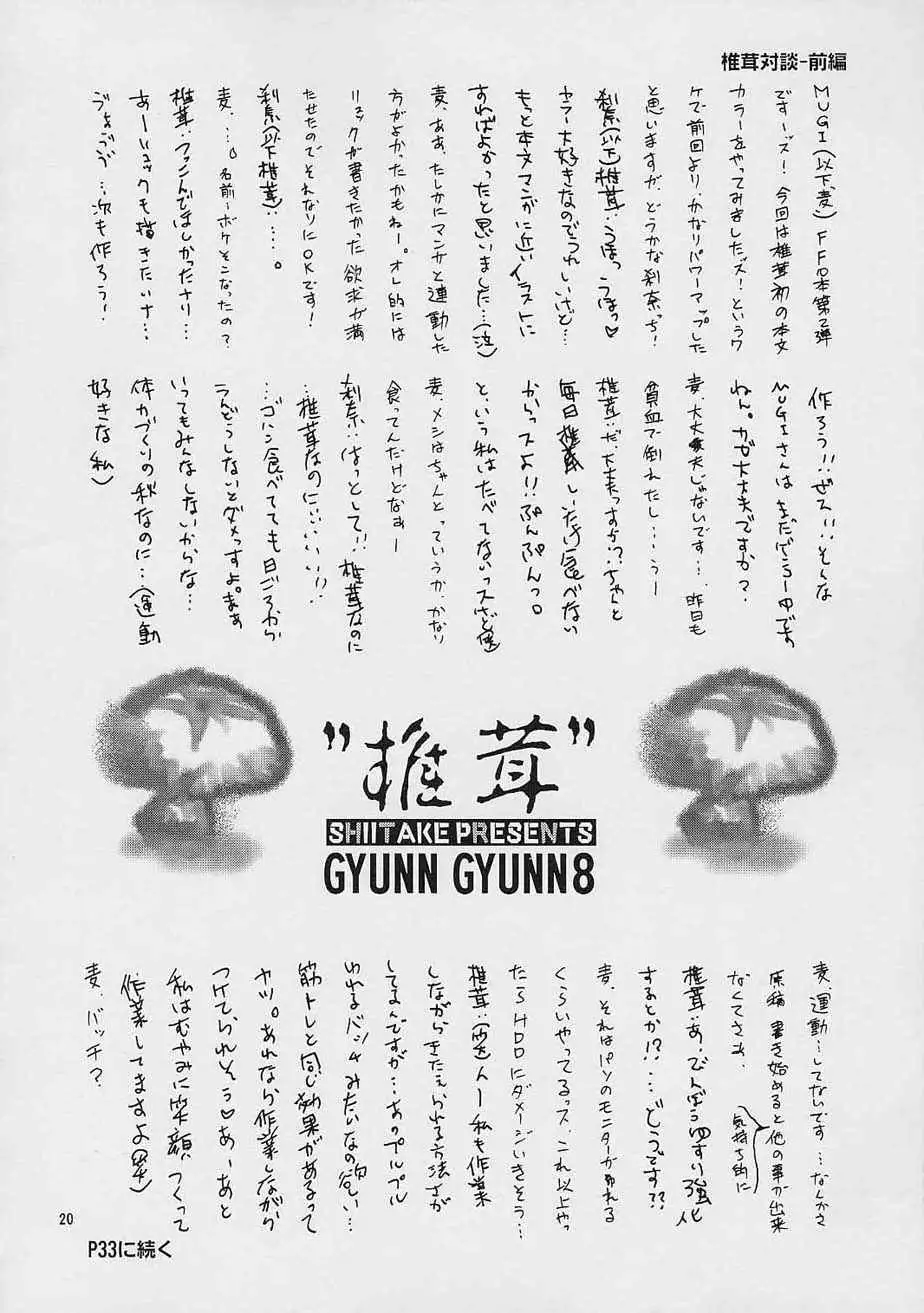 椎茸対談-前編
MUGI(以下麦)FF本第2弾
です〜ズ!今回は椎茸初の本文
カラーをやってみましたッズ!というワ
ケで前回より、かなりパワーアップした
と思いますが、どうかな刹奈っち!
刹奈(以下)椎茸:うほっうほっ♡
カラー大好きなのでうれしいけど…
もっと本文マンガに近いイラストに
すればよかったと思いました…(泣)
麦、ああ、たしかにマンガと連動した
方がよかったかもねー。オレ的には
リュックが書きたかった欲求が満
たせたのでそれなりにOKです!
刹奈(以下椎茸):…。
麦、…。名前〜ボケそこなったの?
椎茸:つっこんでほしかったナリ…
あーリュックも描きたいナ…
ブよブブ…次も作ろう!
作ろう!!ぜス!!そんな
MUGIさんはまだげろーゆです
ねん。カゼ大丈夫ですか?
麦、大丈夫じゃないです…、昨日も
貧血で倒れたし…うー
椎茸:だ、大丈夫っすか!?ちゃんと
毎日椎茸しいたけ食べない
からっスよ!!ぷんぷんっ。
という私はたべてないっスけど(俺
麦、メシはちゃんとっていうか、かなり
食ってんだけどなぁー
刹奈:はっとして!!椎茸なのに
…椎茸なのにいいいい!!
…ゴハン食べてても日ごろから
うんどうしないとダメっすよ。まぁ
いってもみんなしないからな…
体力づくりの秋なのに…(運動
好きな私)
”椎茸”
SHIITAKE PRESENTS
GYUNN GYUNN8
麦、運動〜してないです…なんかさ
原稿書き始めると他の事が出来
なくてさぁ、
気持ち的に
椎茸:あ、びんぼうゆすり強化
するとか!?…どうっす??
麦、それはパソのモニターがゆれる
くらいやってるっス、これ以上やっ
たらHDDにダメージいきそう…
椎茸:(笑)んー私も作業
しながらきたえられる方法さが
してるんですが…あのプルプル
ゆれるバシ4みたいなの欲しい…
筋トレと同じ効果があるって
ヤツ。あれなら作業しながら
つけてられそう♡あーあと
私はむやみに笑顔つくって
作業してますよ(笑)
麦、バッチ?
20
P33に続く